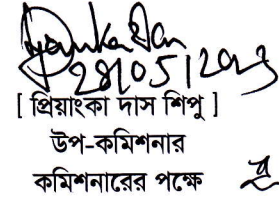 28/05/2023
[ প্রিয়াংকা দাস শিপু ]
উপ-কমিশনার
কমিশনারের পক্ষে